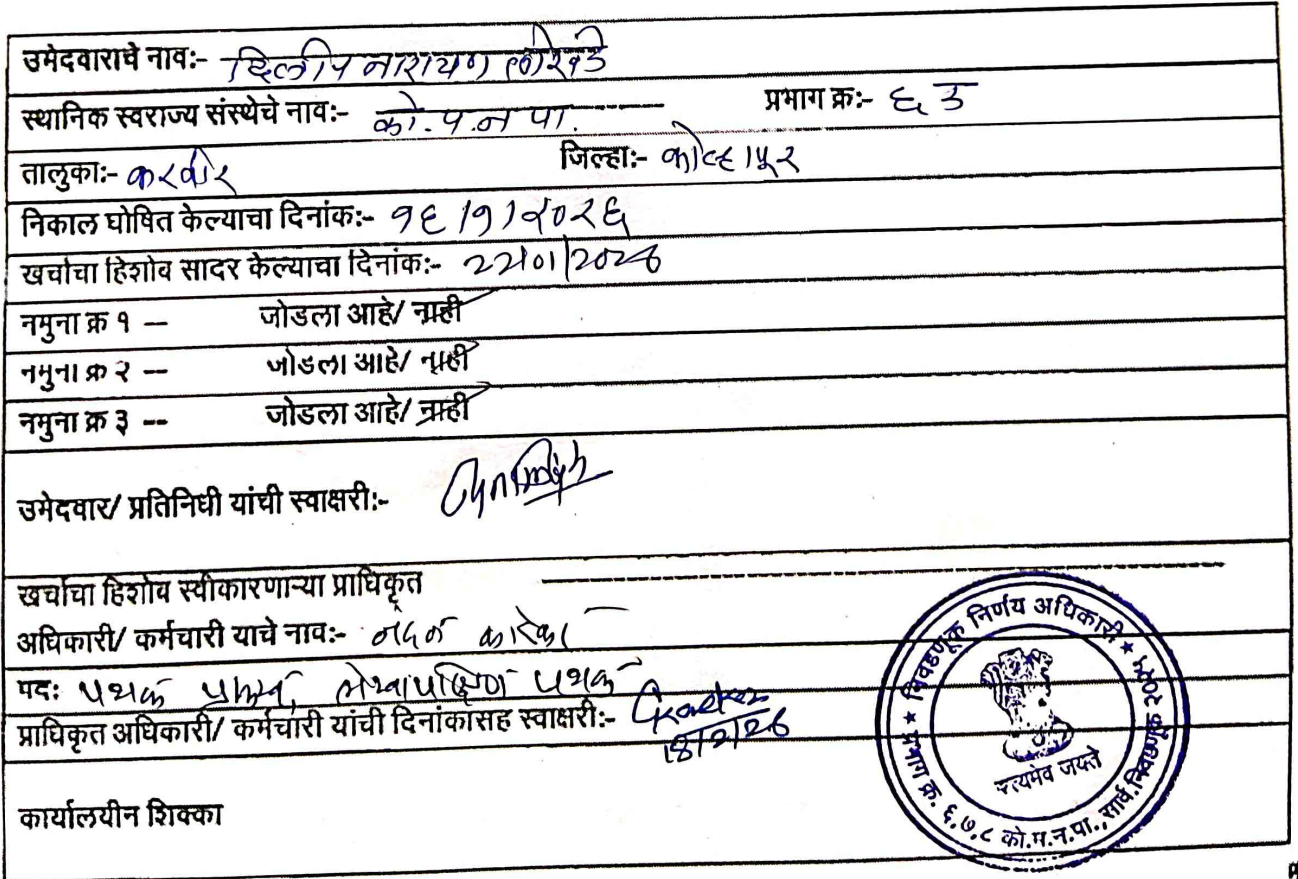 उमेदवाराचे नाव:- दिलीप नारायण लोखंडे
स्थानिक स्वराज्य संस्थेचे नाव:- को.प.न पा. प्रभाग क्र:- ६ उ
तालुका:- करवीर जिल्हा:- कोल्हापूर
निकाल घोषित केल्याचा दिनांक:- १६/१/२०२६
खर्चाचा हिशोब सादर केल्याचा दिनांक:- 22/01/2026
नमुना क्र १ — जोडला आहे/ नाही
नमुना क्र २ -- जोडला आहे/ नाही
नमुना क्र ३ -- जोडला आहे/ नाही
उमेदवार/ प्रतिनिधी यांची स्वाक्षरी:-
खर्चाचा हिशोब स्वीकारणाऱ्या प्राधिकृत
अधिकारी/ कर्मचारी याचे नाव:-
पद: पथक प्रमुख, लेखापरिक्षण पथक
प्राधिकृत अधिकारी/ कर्मचारी यांची दिनांकासह स्वाक्षरी:-
18/2/26
कार्यालयीन शिक्का
निवडणूक निर्णय अधिकारी ★
सत्यमेव जयते
प्रभाग क्र. ६,७,८ को.म.न.पा., सार्व.निवडणूक २०२५